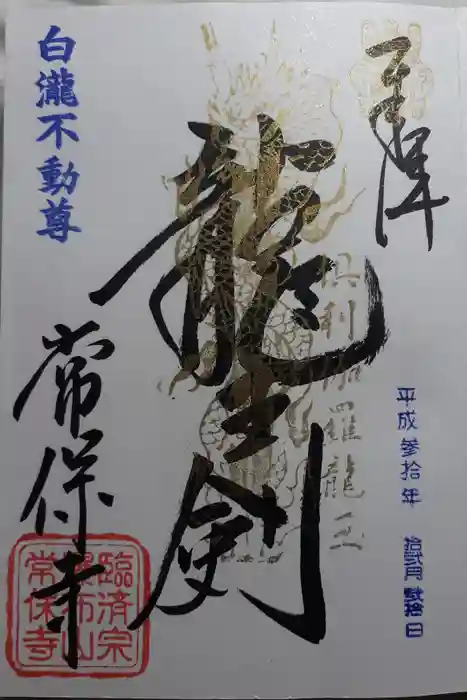 奉拝
平成参拾年 拾弐月弐拾日
倶利伽羅龍王
龍王剣
白瀧不動尊
常保寺
臨済宗
瀑布山
常保寺